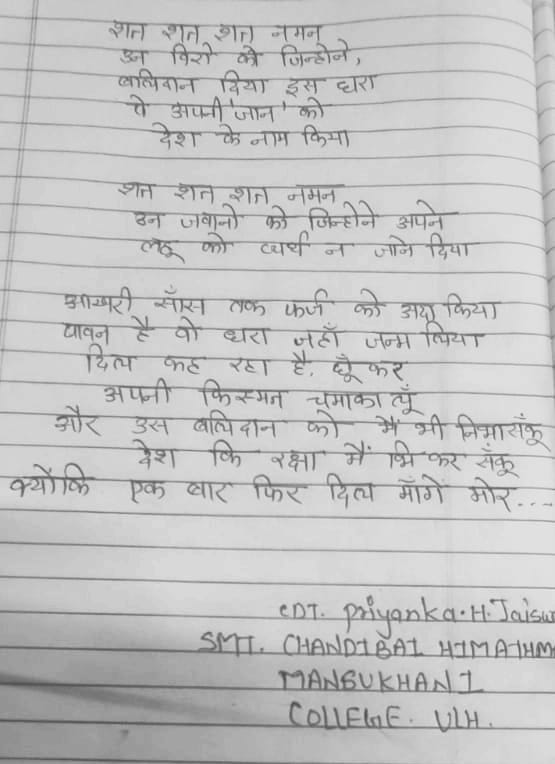 शत शत शत नमन
उन विरो को जिन्होने,
बलिदान दिया इस धरा
पे अपनी 'जान' को
देश के नाम किया
शत शत शत नमन
उन जवानो को जिन्होने अपने
लहू को व्यर्थ न जाने दिया
आखरी साँस तक फर्ज को अदा किया
पावन है वो धरा जहाँ जन्म लिया
दिल कह रहा है, छूँ कर
अपनी किस्मत चमाका लूँ
और उस बलिदान को मै भी निभा सँकू
देश कि रक्षा मैं भि कर सँकू
क्योंकि एक बार फिर दिल माँगे मोर...
CDT. Priyanka.H.Jaisw
SMT. CHANDIBAI HIMATHM
MANSUKHANI
COLLEGE. ULH.